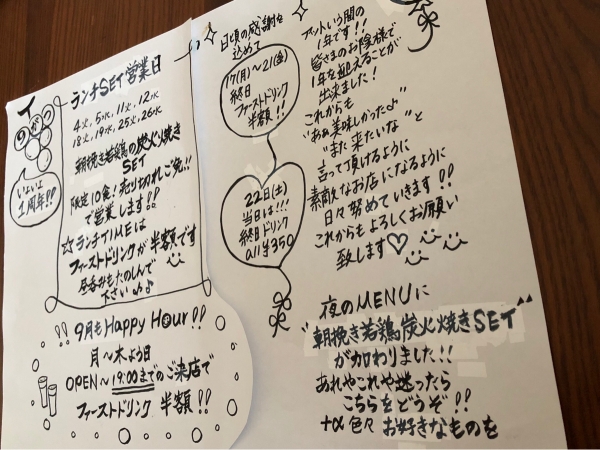 ランチSET営業日
4火, 5水, 11火, 12水
18火, 19水, 25火, 26水
朝挽き若鶏の炭火焼き
SET
限定10食!売り切れご免!!
で営業します!!
☆ランチTIMEは
ファーストドリンクが半額です
昼呑みもたのしんで
下さい♪♪
9がつ
いよいよ
1周年!!
!!9月もHappy Hour!!
月〜木よう日
OPEN〜19:00までのご来店で
ファーストドリンク半額!!
日頃の感謝を
込めて
17(月)〜21(金)
終日
ファーストドリンク
半額!!
22日(土)
当日は!!!
終日ドリンク
all¥350
アットいう間の
1年です!!
皆さまのお陰様で
1年を迎えることが
出来ました!
これからも
"ああ美味しかった♪"
"また来たいな"と
言って頂けるように
素敵なお店になるように
日々努めていきます!!
これからもよろしくお願い
致します♡
夜のMENUに
"朝挽き若鶏炭火焼きSET"
が加わりました!!
あれやこれや迷ったら
こちらをどうぞ!!
+α色々お好きなものを